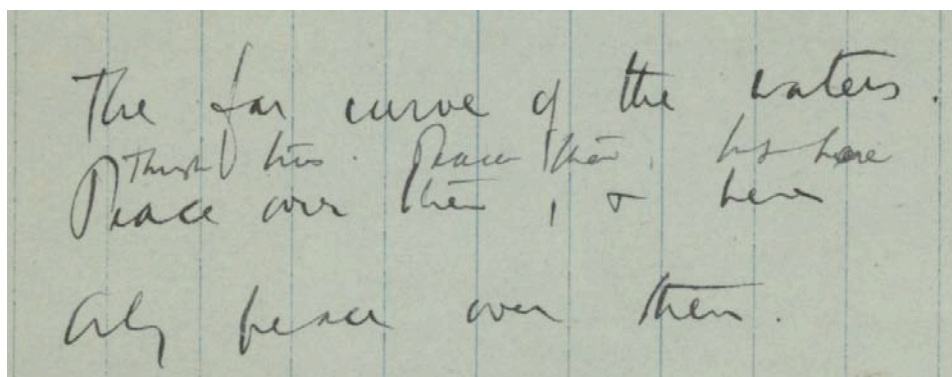 The far curve of the waters.
Peace there, but here
Peace over there, & here
Only peace over there.